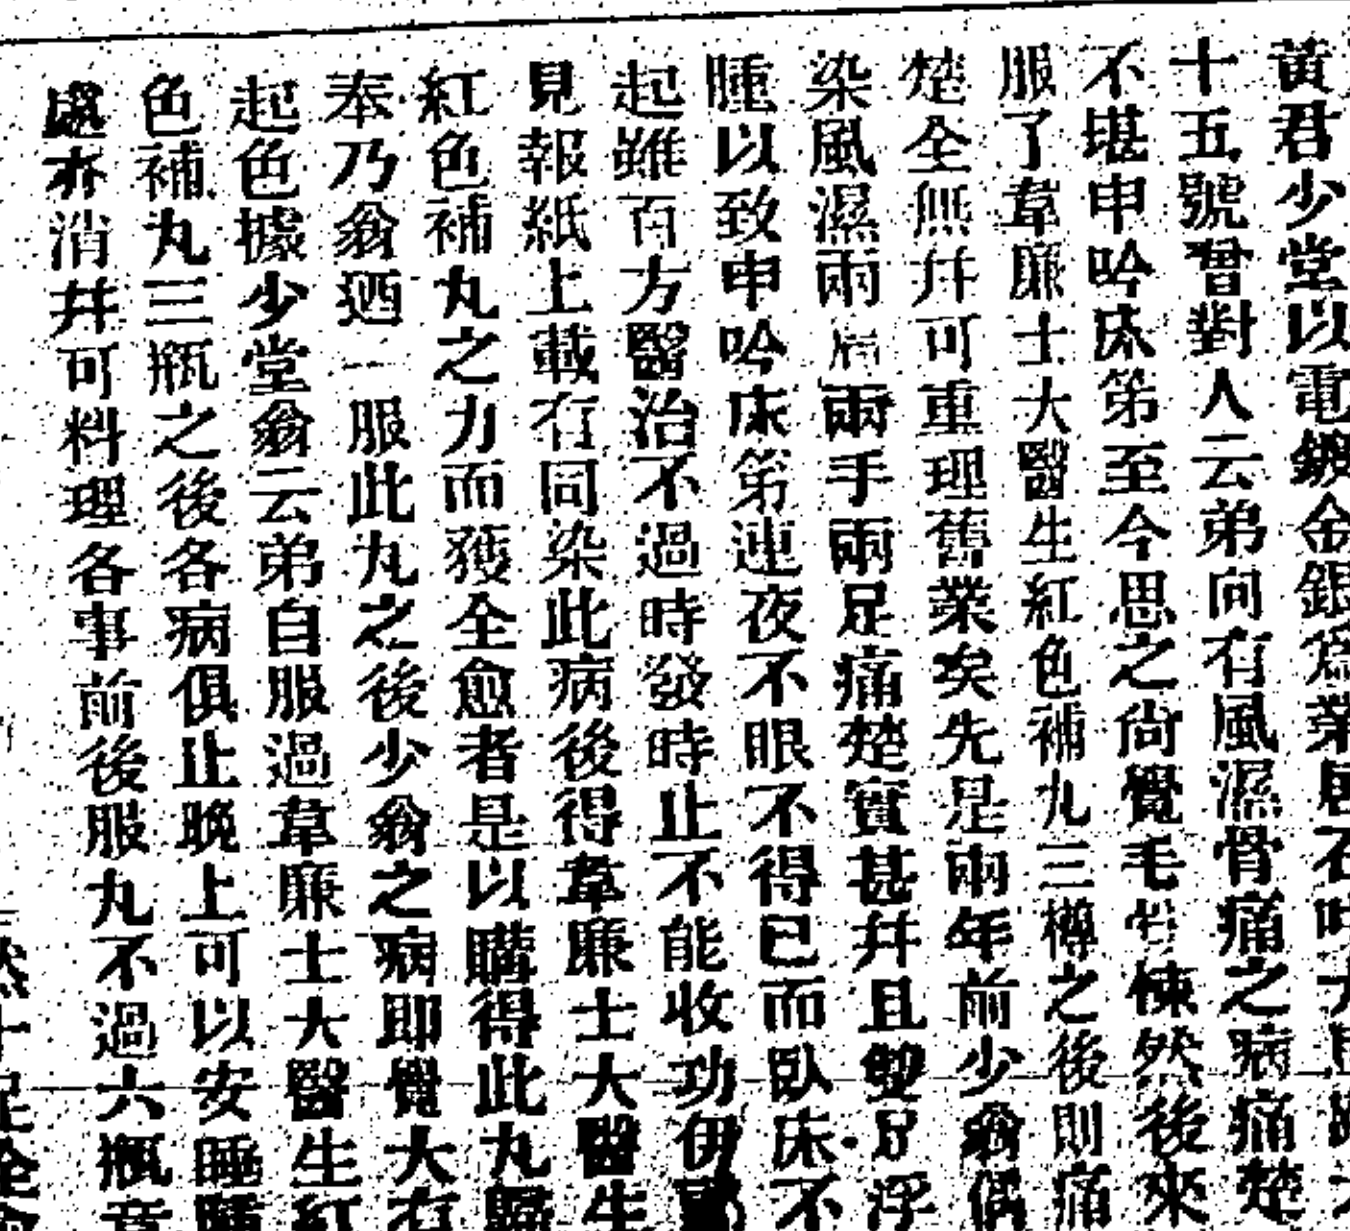 黃君少堂以電鍍金銀爲業居石叻大
十五號曾對人云弟向有風濕骨痛之病痛楚
不堪申吟床笫至今思之尙覺毛悚然後來
服了韋廉士大醫生紅色補丸三樽之後則痛
楚全無幷可重理舊業矣先是兩年前少翁偶
染風濕兩兩手兩足痛楚實甚幷且雙足浮
腫以致申吟床笫連夜不眼不得已而臥床不
起雖百方醫治不過時發時止不能收功伊
見報紙上載有同染此病後得韋廉士大醫生
紅色補丸之力而獲全愈者是以購得此丸歸
奉乃翁迺一服此丸之後少翁之病即覺大有
起色據少堂翁云弟自服過韋廉士大醫生紅
色補丸三瓶之後各病俱止晚上可以安睡腫
處亦消幷可料理各事前後服丸不過六瓶竟
足全愈